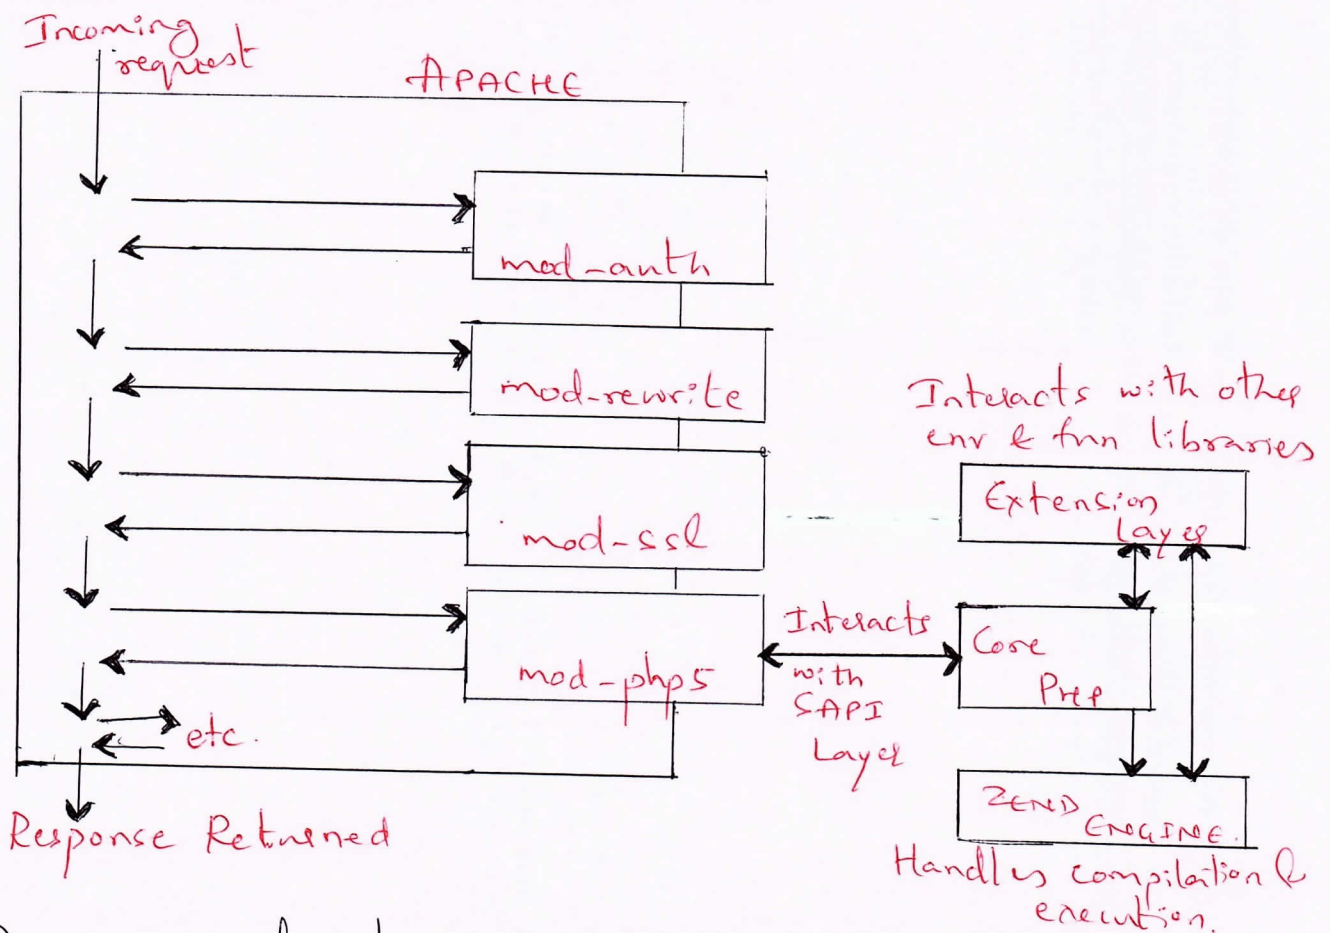 Incoming
request
APACHE
mod-auth
mod-rewrite
mod-ssl
mod-php5
etc.
Response Returned
Interacts
with
SAPI
Layer
Interacts with other
env & fnn libraries
Extension
Layer
Core
ZEND
ENGINE.
Handles compilation &
execution.